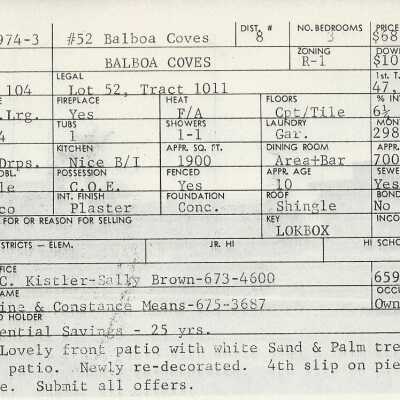 DIST. # NO. BEDROOMS PRICE
974-3 #52 Balboa Coves 8 3 $68
ZONING DOW
BALBOA COVES R-1 $10
LEGAL 1st. T.
104 Lot 52, Tract 1011 47,
FIREPLACE HEAT FLOORS % INT
.Lrg. Yes F/A Cpt/Tile 6½
TUBS SHOWERS LAUNDRY MON
4 1 1-1 Gar. 298
KITCHEN APPR. SQ. FT. DINING ROOM APPR
Drps. Nice B/I 1900 Area+Bar 700
OBL. POSSESSION FENCED APPR. AGE SEWE
le C.O.E. Yes 10 Yes
INT. FINISH FOUNDATION ROOF BOND
co Plaster Conc. Shingle No
FOR OR REASON FOR SELLING KEY INCO
LOKBOX
STRICTS - ELEM. JR. HI HI SCHO
FFICE
C. Kistler-Sally Brown-673-4600 659
NAME OCCU
ine & Constance Means-675-3687 Own
D HOLDER
ential Savings - 25 yrs.
Lovely front patio with white Sand & Palm tre
patio. Newly re-decorated. 4th slip on pie
e. Submit all offers.